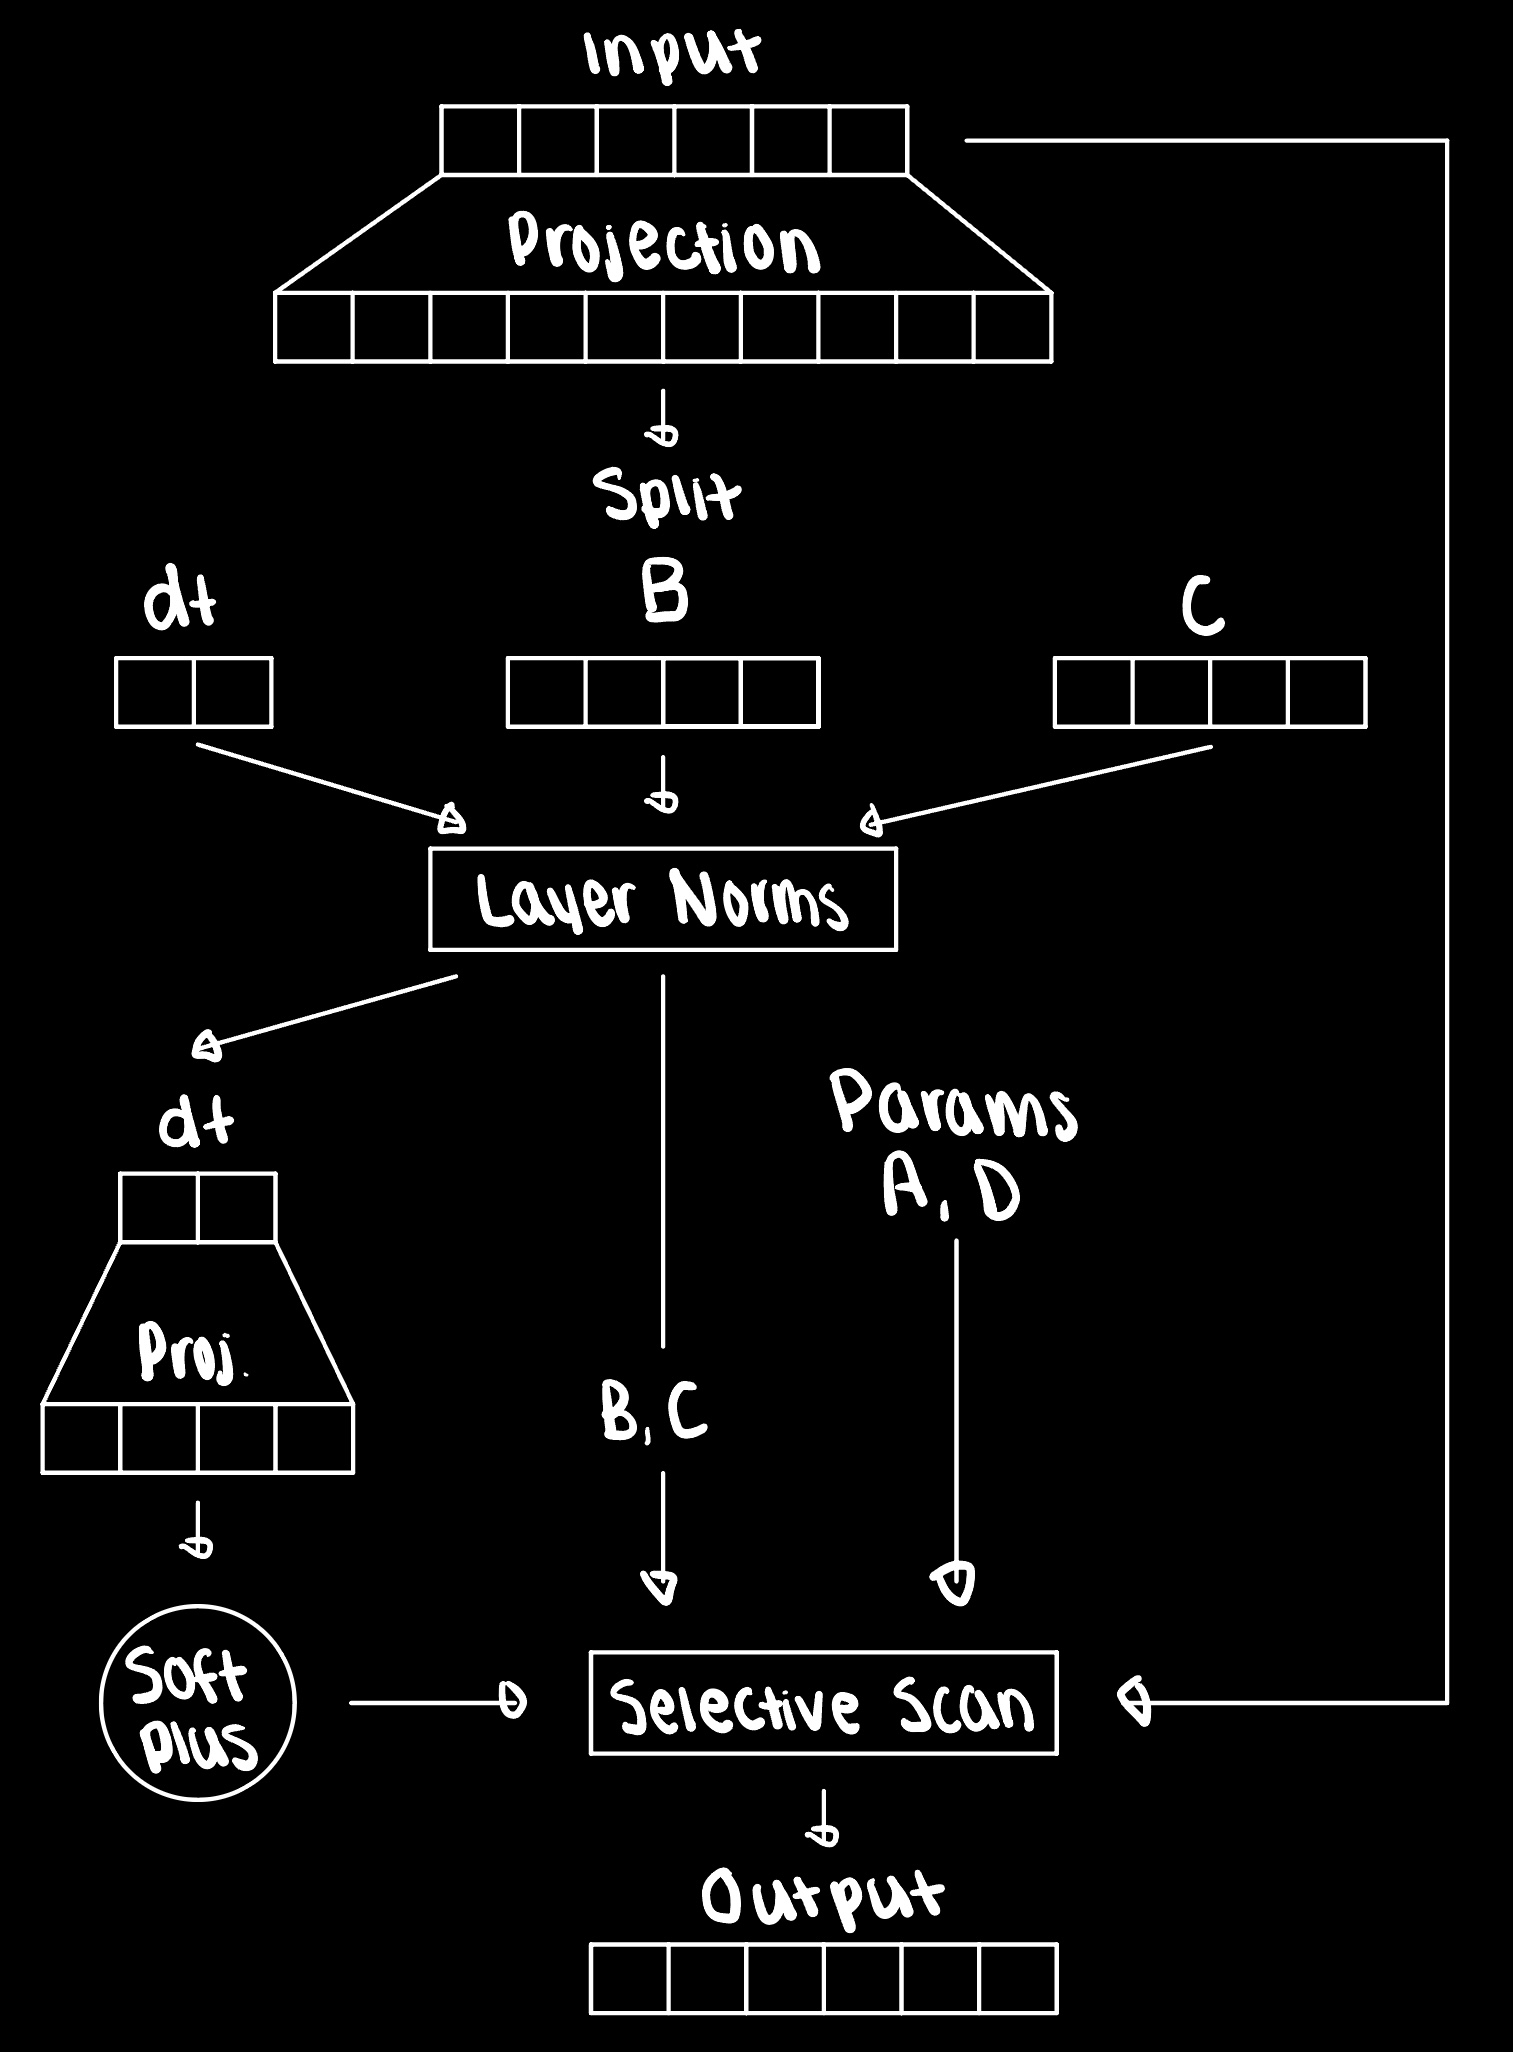 Input
Projection
Split
dt
B
C
Layer Norms
dt
Params
A, D
Proj.
B, C
Soft
plus
Selective Scan
Output